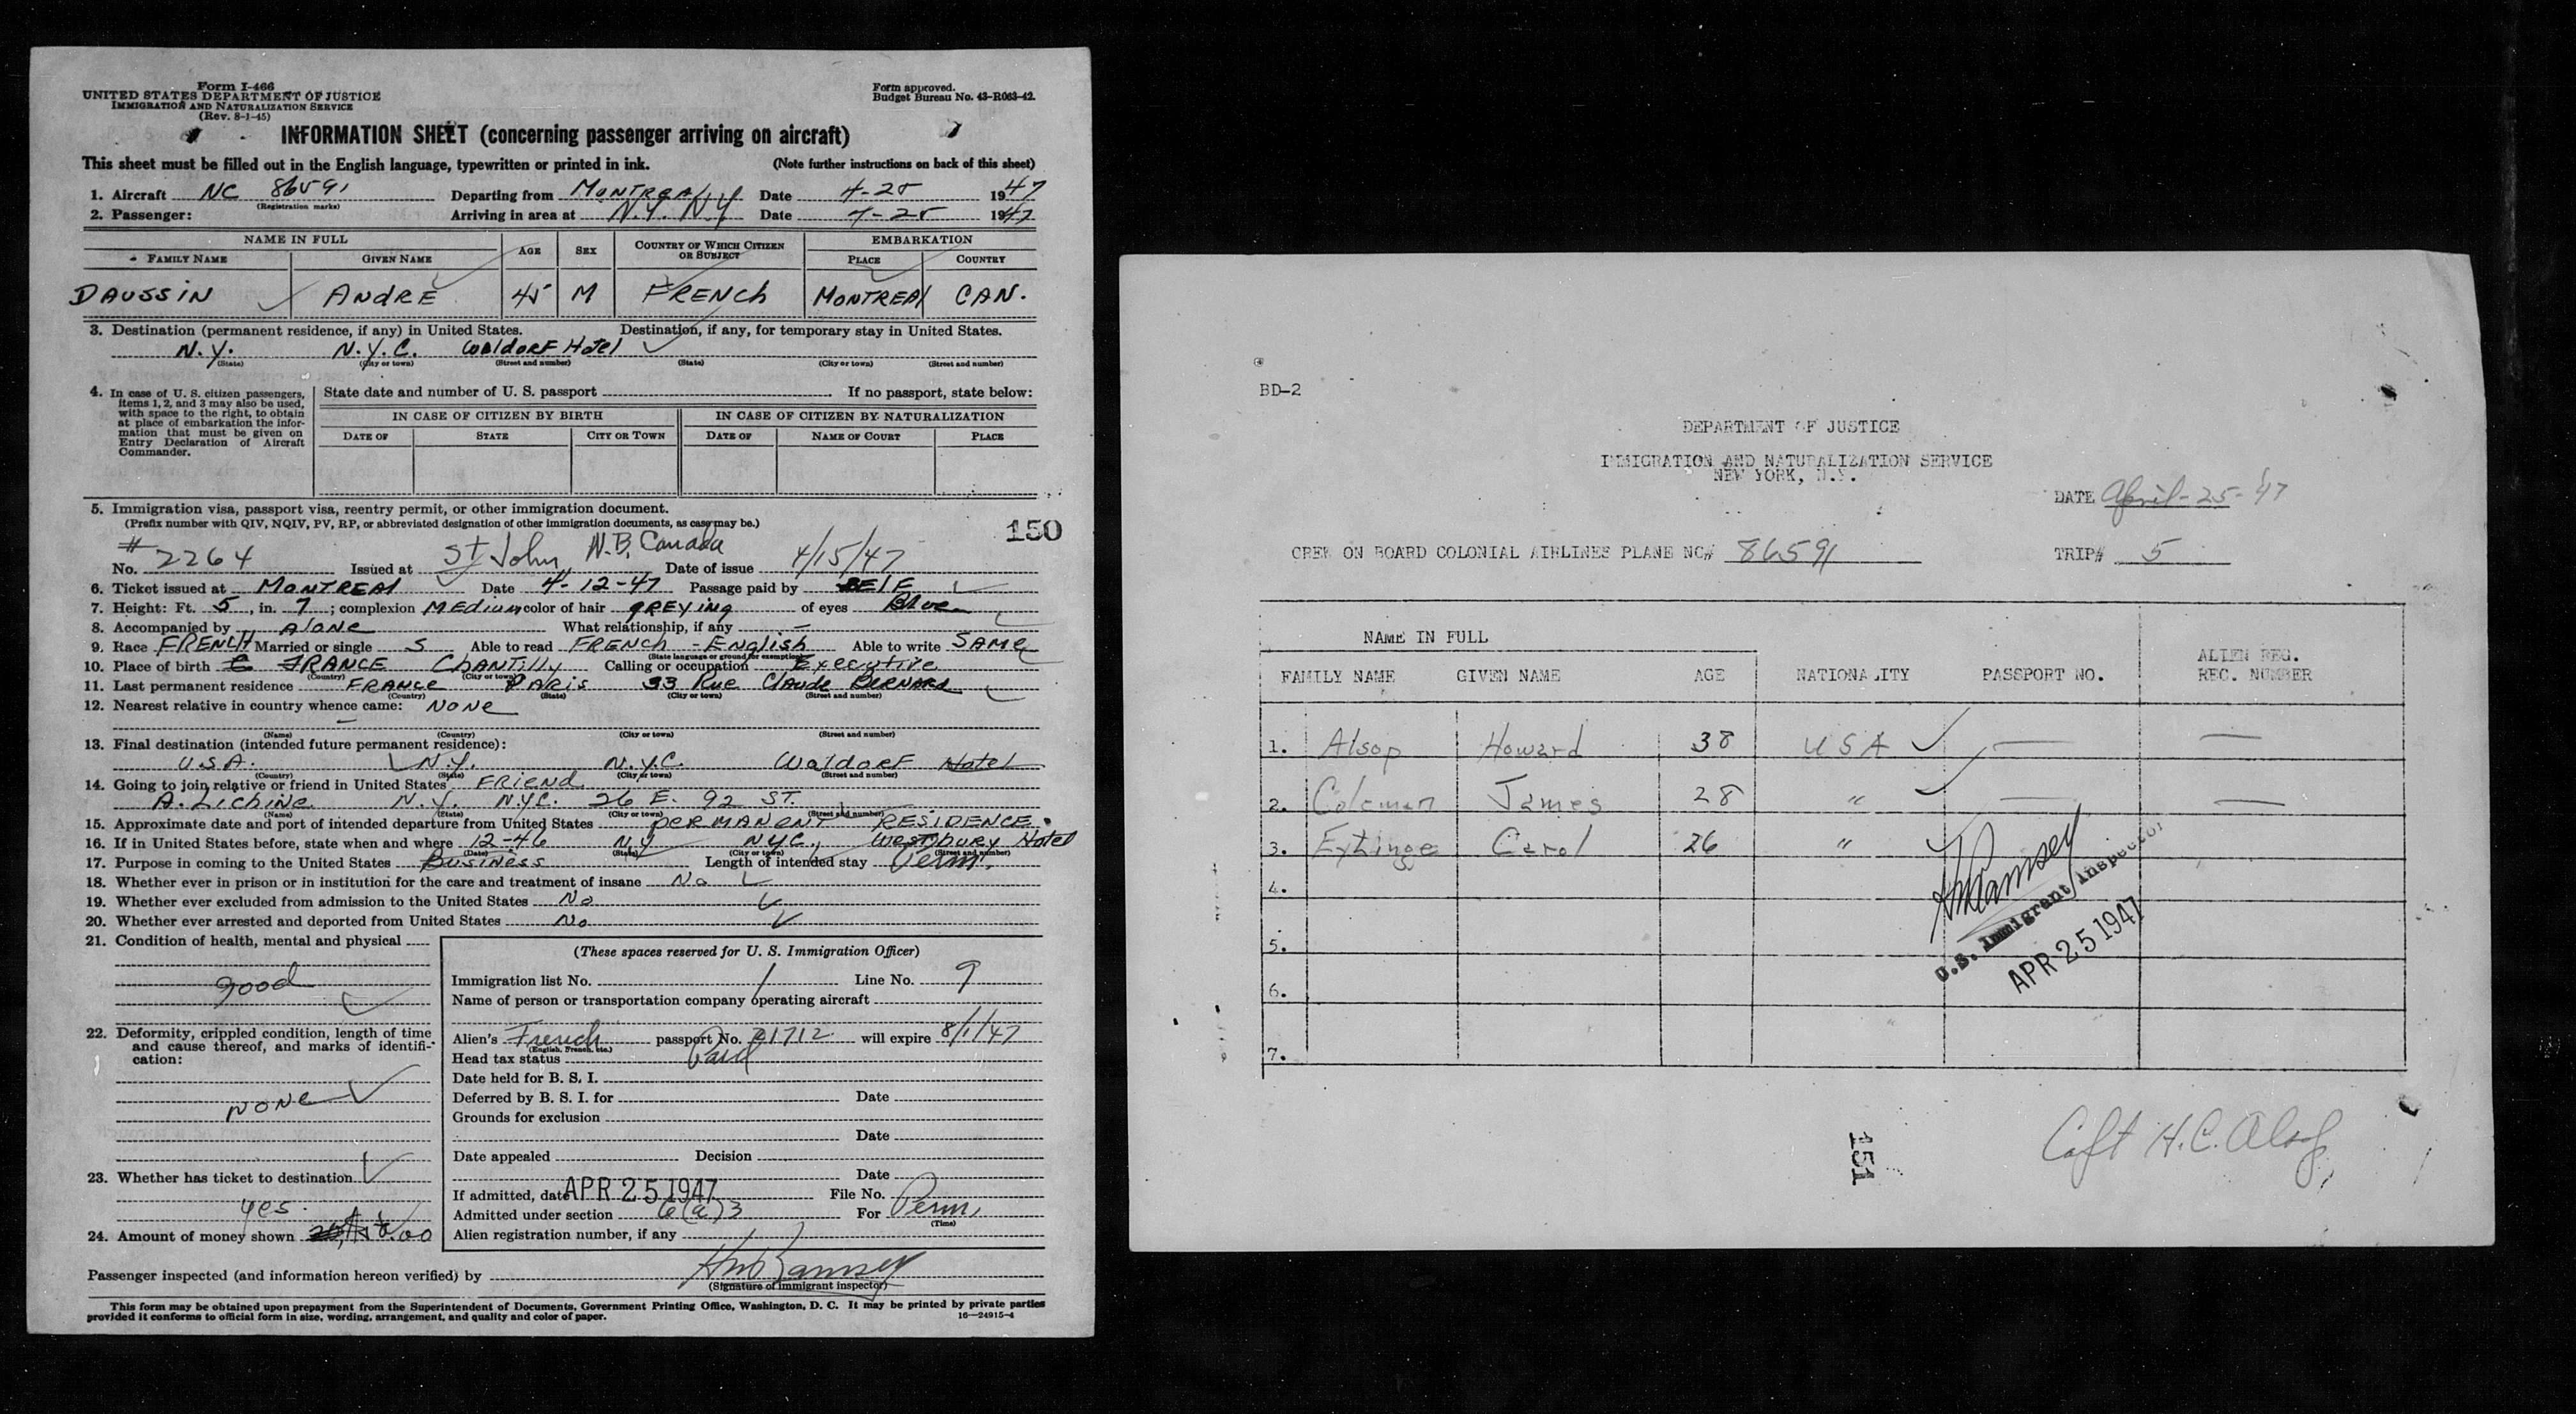 Form I-466
UNITED STATES DEPARTMENT OF JUSTICE
IMMIGRATION AND NATURALIZATION SERVICE
(Rev. 8-1-45)
Form approved.
Budget Bureau No. 43-R063-42.
INFORMATION SHEET (concerning passenger arriving on aircraft)
This sheet must be filled out in the English language, typewritten or printed in ink. (Note further instructions on back of this sheet)
1. Aircraft NC 86591 Departing from MONTREAL Date 4-25 1947
(Registration marks)
2. Passenger: Arriving in area at N.Y. N.Y Date 4-25 1947
NAME IN FULL AGE SEX COUNTRY OF WHICH CITIZEN OR SUBJECT EMBARKATION
FAMILY NAME GIVEN NAME PLACE COUNTRY
DAUSSIN ANDRE 45 M FRENCH MONTREAL CAN.
3. Destination (permanent residence, if any) in United States. Destination, if any, for temporary stay in United States.
N.Y. N.Y.C. WALDORF HOTEL
(State) (City or town) (Street and number) (State) (City or town) (Street and number)
4. In case of U. S. citizen passengers, items 1, 2, and 3 may also be used, with space to the right, to obtain at place of embarkation the information that must be given on Entry Declaration of Aircraft Commander.
State date and number of U. S. passport If no passport, state below:
IN CASE OF CITIZEN BY BIRTH IN CASE OF CITIZEN BY NATURALIZATION
DATE OF STATE CITY OR TOWN DATE OF NAME OF COURT PLACE
5. Immigration visa, passport visa, reentry permit, or other immigration document.
(Prefix number with QIV, NQIV, PV, RP, or abbreviated designation of other immigration documents, as case may be.)
150
No. # 2264 Issued at St John, N.B. Canada Date of issue 4/15/47
6. Ticket issued at MONTREAL Date 4-12-47 Passage paid by SELF
7. Height: Ft. 5, in. 7; complexion MEDIUM color of hair GREYING of eyes BLUE
8. Accompanied by ALONE What relationship, if any –
9. Race FRENCH Married or single S Able to read FRENCH - ENGLISH Able to write SAME
(State language or ground for exemption)
10. Place of birth FRANCE CHANTILLY Calling or occupation EXECUTIVE
(Country) (City or town)
11. Last permanent residence FRANCE PARIS 33 RUE CLAUDE BERNARD
(Country) (State) (City or town) (Street and number)
12. Nearest relative in country whence came: NONE
–
(Name) (Country) (City or town) (Street and number)
13. Final destination (intended future permanent residence):
U.S.A. N.Y. N.Y.C. WALDORF HOTEL
(Country) (State) (City or town) (Street and number)
14. Going to join relative or friend in United States FRIEND
A. LICHINE N.Y. N.Y.C. 26 E. 92 ST.
(Name) (State) (City or town) (Street and number)
15. Approximate date and port of intended departure from United States PERMANENT RESIDENCE.
16. If in United States before, state when and where 12-46 N.Y NYC., WESTBURY HOTEL
(Date) (State) (City or town) (Street and number)
17. Purpose in coming to the United States BUSINESS Length of intended stay Perm.
18. Whether ever in prison or in institution for the care and treatment of insane No
19. Whether ever excluded from admission to the United States No
20. Whether ever arrested and deported from United States No
21. Condition of health, mental and physical
good
22. Deformity, crippled condition, length of time and cause thereof, and marks of identification:
NONE
23. Whether has ticket to destination
yes.
24. Amount of money shown
(These spaces reserved for U. S. Immigration Officer)
Immigration list No. 1 Line No. 9
Name of person or transportation company operating aircraft
Alien's French passport No. 21712 will expire 8/1/47
(English, French, etc.)
Head tax status Paid
Date held for B. S. I.
Deferred by B. S. I. for Date
Grounds for exclusion
Date
Date appealed Decision
Date
If admitted, date APR 25 1947 File No.
Admitted under section 6(a)3 For Perm.
(Time)
Alien registration number, if any
Passenger inspected (and information hereon verified) by HW Ramsey
(Signature of immigrant inspector)
This form may be obtained upon prepayment from the Superintendent of Documents, Government Printing Office, Washington, D. C. It may be printed by private parties
provided it conforms to official form in size, wording, arrangement, and quality and color of paper. 16—24915-4
BD-2
DEPARTMENT OF JUSTICE
IMMIGRATION AND NATURALIZATION SERVICE
NEW YORK, N.Y.
DATE April-25-'47
CREW ON BOARD COLONIAL AIRLINES PLANE NC# 86591 TRIP# 5
NAME IN FULL
FAMILY NAME GIVEN NAME AGE NATIONALITY PASSPORT NO. ALIEN REG. REC. NUMBER
1. Alsop Howard 38 USA — —
2. Coleman James 28 " — —
3. Eytinge Carol 26 "
4.
5.
6.
7.
HW Ramsey
U.S. Immigrant Inspector
APR 25 1947
151
Capt H.C. Alsop